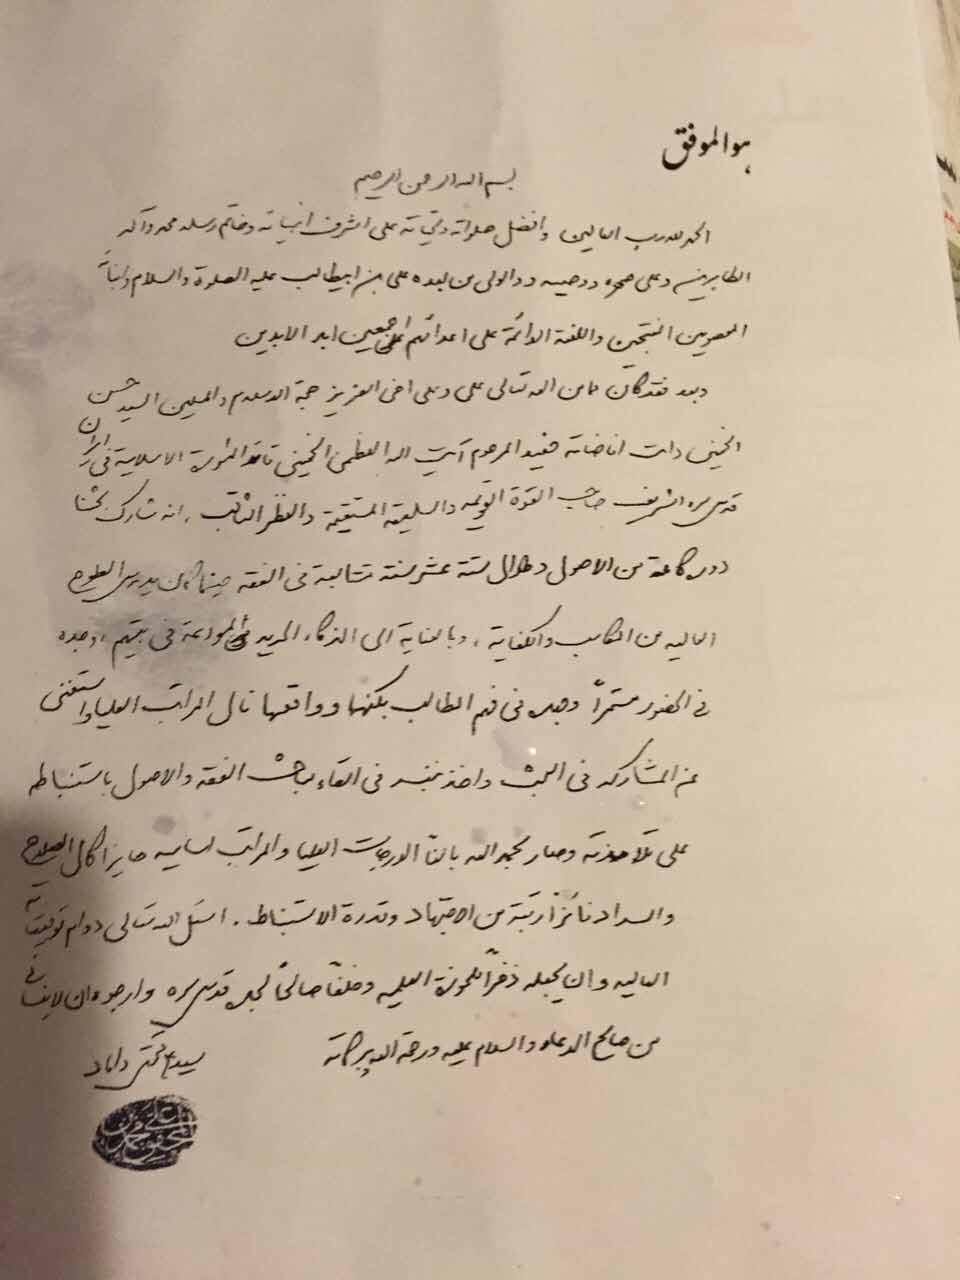 هو الموفق
بسم الله الرحمن الرحیم
الحمد لله رب العالمین وافضل صلواته وتحیاته علی اشرف انبیائه وخاتم رسله محمد وآله
الطاهرین وعلی صهره ووصیه والولی من بعده علی بن ابیطالب علیه الصلوة والسلام وابنائه
المعصومین المنتجبین واللعنة الدائمة علی اعدائهم اجمعین ابد الابدین
وبعد فقد کان مما من الله تعالی علی وعلی اخی العزیز حجة الاسلام والمسلمین السید حسن
الخمینی دامت افاضاته حفید المرحوم آیت الله العظمی الخمینی قائد الثورة الاسلامیة فی ایران
قدس سره الشریف صاحب القوة القویمه والسلیقه المستقیمة والنظر الثاقب، انه شارک بحثنا
دورة کاملة من الاصول و طلال ستة عشر سنة متتابعة فی الفقه حینما کان یدرس السطوح
العالیه من المکاسب والکفایة، وبالعنایة الی الذکاء المزید الموادعة فی بیتهم، وجده
فی الحضور مستمراً وجده فی فهم المطالب بکنهها وواقعها نال المراتب العلیا واستغنی
عن المشارکه فی البحث واخذ بنفسه فی القاء مباحث الفقه والاصول باستنباطه
علی تلامذته وصار بحمد الله بالغاً الدرجات العلیا والمراتب السامیه حایزاً کمال الصلاح
والسداد نائزاً رتبة من الاجتهاد وقدرة الاستنباط. اسئل الله تعالی دوام توفیقاته
العالیه وان یجعله ذخراً للحوزة العلمیه وخلفاً صالحاً لجده قدس سره وارجوه ان لا ینسانی
من صالح الدعاء والسلام علیه ورحمة الله وبرکاته
سیدعلی محقق داماد